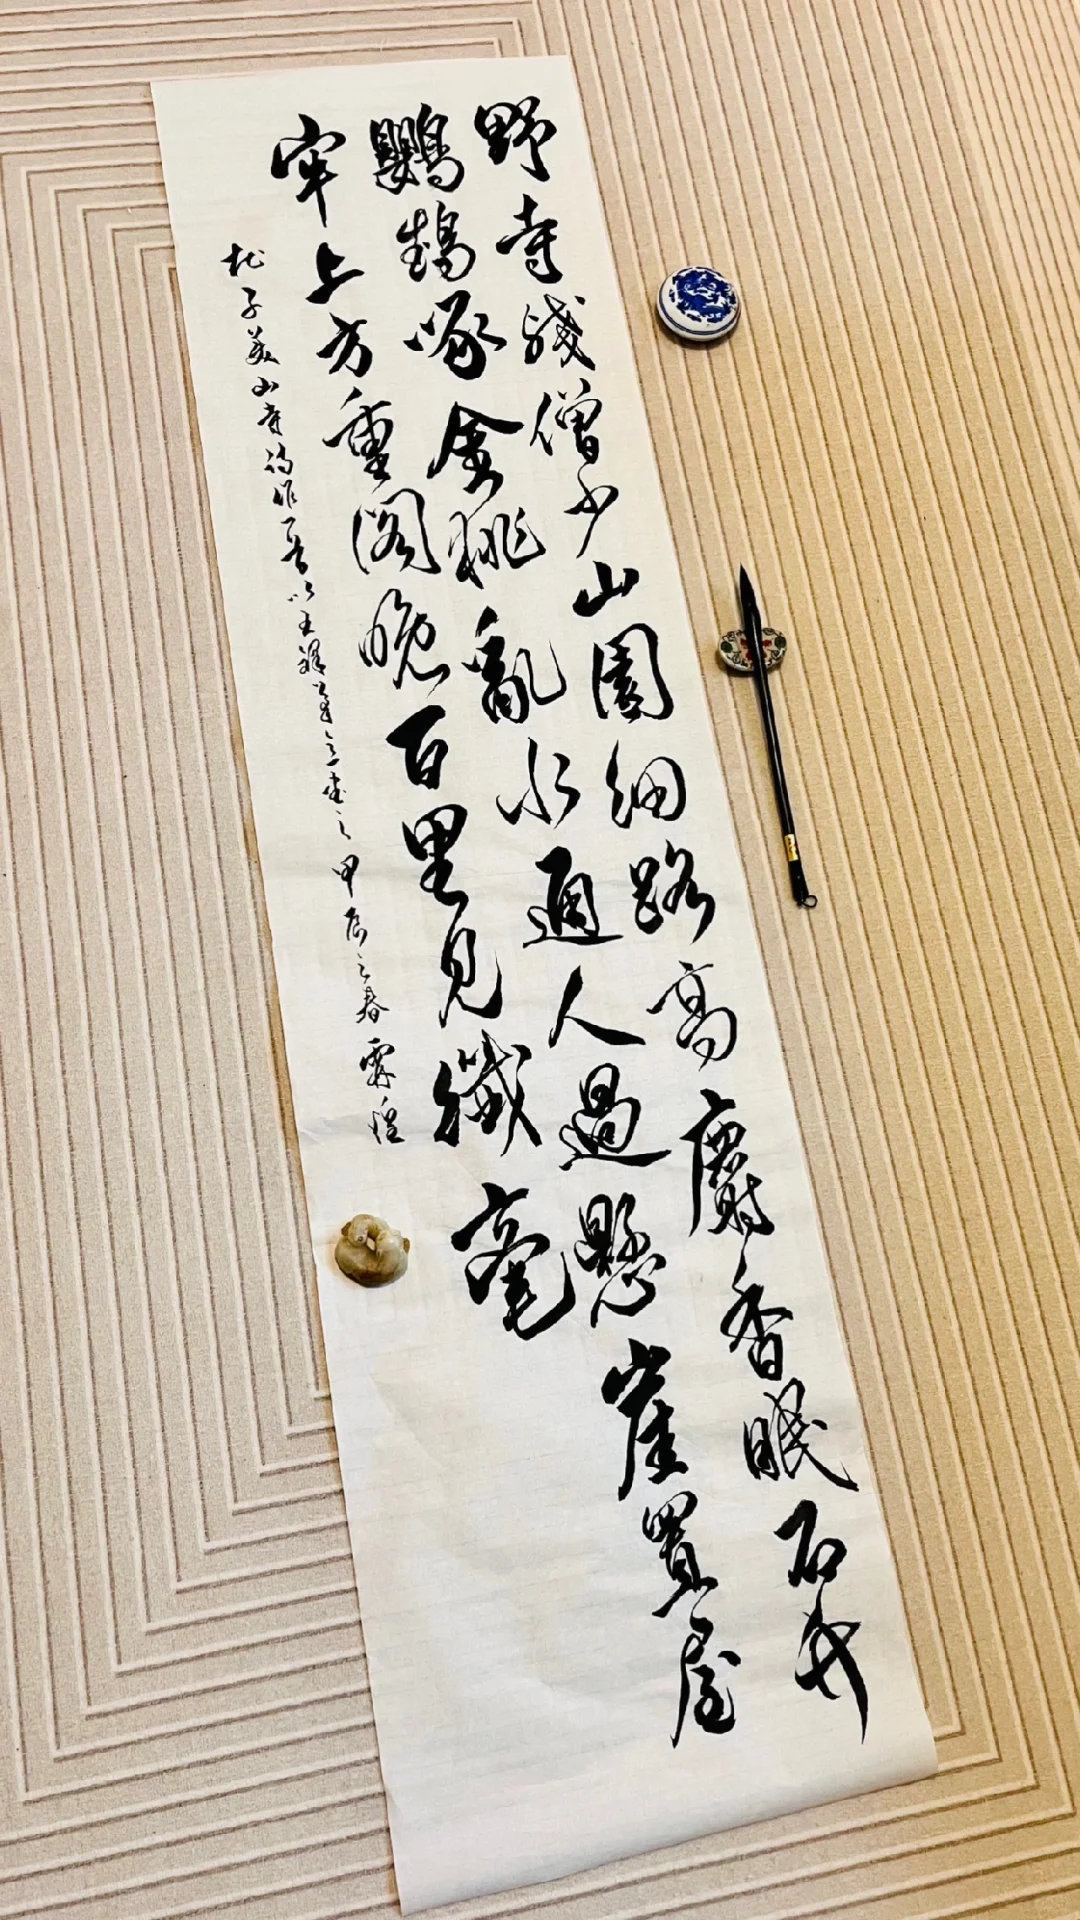 野寺殘僧少山園細路高麝香眠石竹
鸚䳇啄金桃亂水通人過懸崖置屋
牢上方重閣晚百里見纖毫
杜子美山寺詩作一首以王鐸筆意書之甲辰之春霖煌